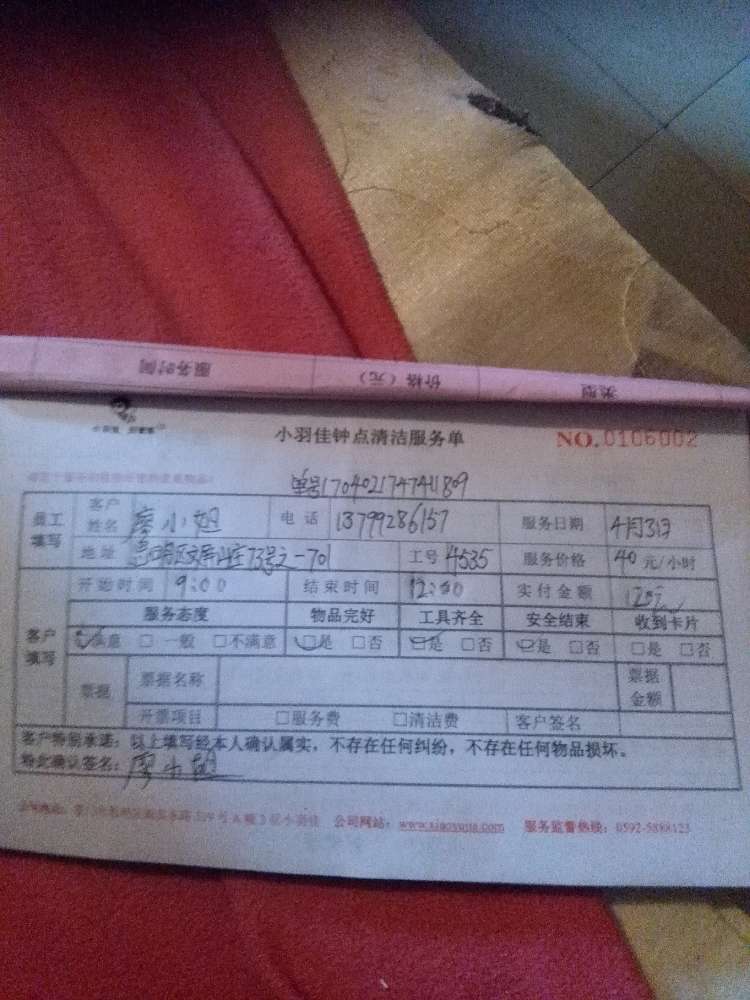 服务时间 价格（元） 类型
小羽佳钟点清洁服务单 NO.0106002
单号170402174741809
员工填写 客户姓名 廖小姐 电话 13799286157 服务日期 4月3日
地址 思明区文屏山庄73号之一701 工号 4535 服务价格 40元/小时
开始时间 9:00 结束时间 12:00 实付金额 120元
客户填写 服务态度 物品完好 工具齐全 安全结束 收到卡片
☑满意 □一般 □不满意 ☑是 □否 ☑是 □否 ☑是 □否 □是 □否
票据 票据名称 票据金额
开票项目 □服务费 □清洁费 客户签名
客户特别承诺：以上填写经本人确认属实，不存在任何纠纷，不存在任何物品损坏。
特此确认签名：廖小姐
公司网站：www.xiaoyujia.com 服务监督热线：0592-5888123